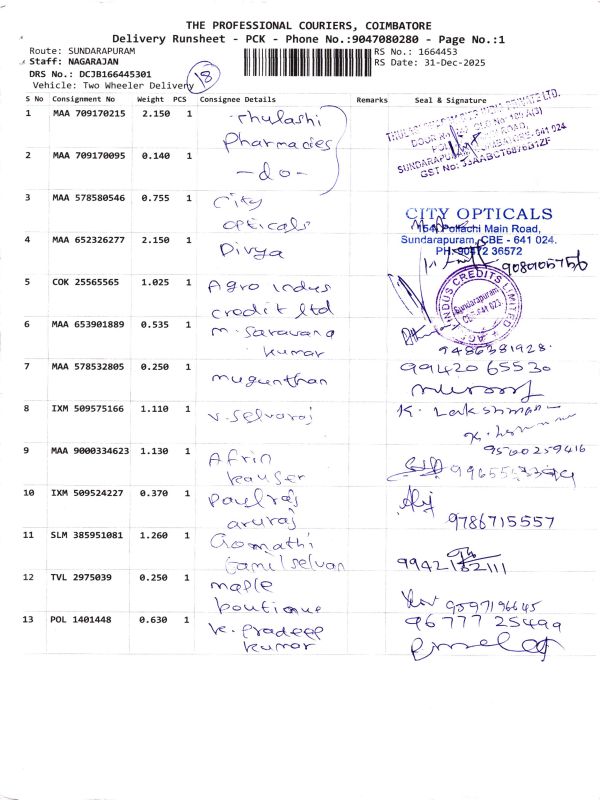 THE PROFESSIONAL COURIERS, COIMBATORE
Delivery Runsheet - PCK - Phone No.:9047080280 - Page No.:1
Route: SUNDARAPURAM
RS No.: 1664453
Staff: NAGARAJAN
RS Date: 31-Dec-2025
DRS No.: DCJB166445301
Vehicle: Two Wheeler Delivery
18
S No Consignment No Weight PCS Consignee Details Remarks Seal & Signature
1 MAA 709170215 2.150 1 Thulashi
Pharmacies
2 MAA 709170095 0.140 1 -do-
SUNDARAPURAM, COIMBATORE-641 024
GST No: 33AABCT6876B1ZF
3 MAA 578580546 0.755 1 City
opticals
CITY OPTICALS
154, Pollachi Main Road,
Sundarapuram, CBE - 641 024.
PH: 90472 36572
4 MAA 652326277 2.150 1 Divya
9080105756
5 COK 25565565 1.025 1 Agro indus
credit ltd
INDUS CREDITS LIMITED
Sundarapuram
CBE-641 023.
6 MAA 653901889 0.535 1 M. Saravana
kumar
9486381928.
7 MAA 578532805 0.250 1 mugunthan
99420 65530
8 IXM 509575166 1.110 1 V. Selvaraj
K. Lakshmanan
9500259416
9 MAA 9000334623 1.130 1 Afrin
kauser
10 IXM 509524227 0.370 1 Paulraj
aruraj
9786715557
11 SLM 385951081 1.260 1 Gomathi
tamilselvan
9942182111
12 TVL 2975039 0.250 1 maple
boutique
9597196645
13 POL 1401448 0.630 1 K. Pradeep
kumar
96777 25499